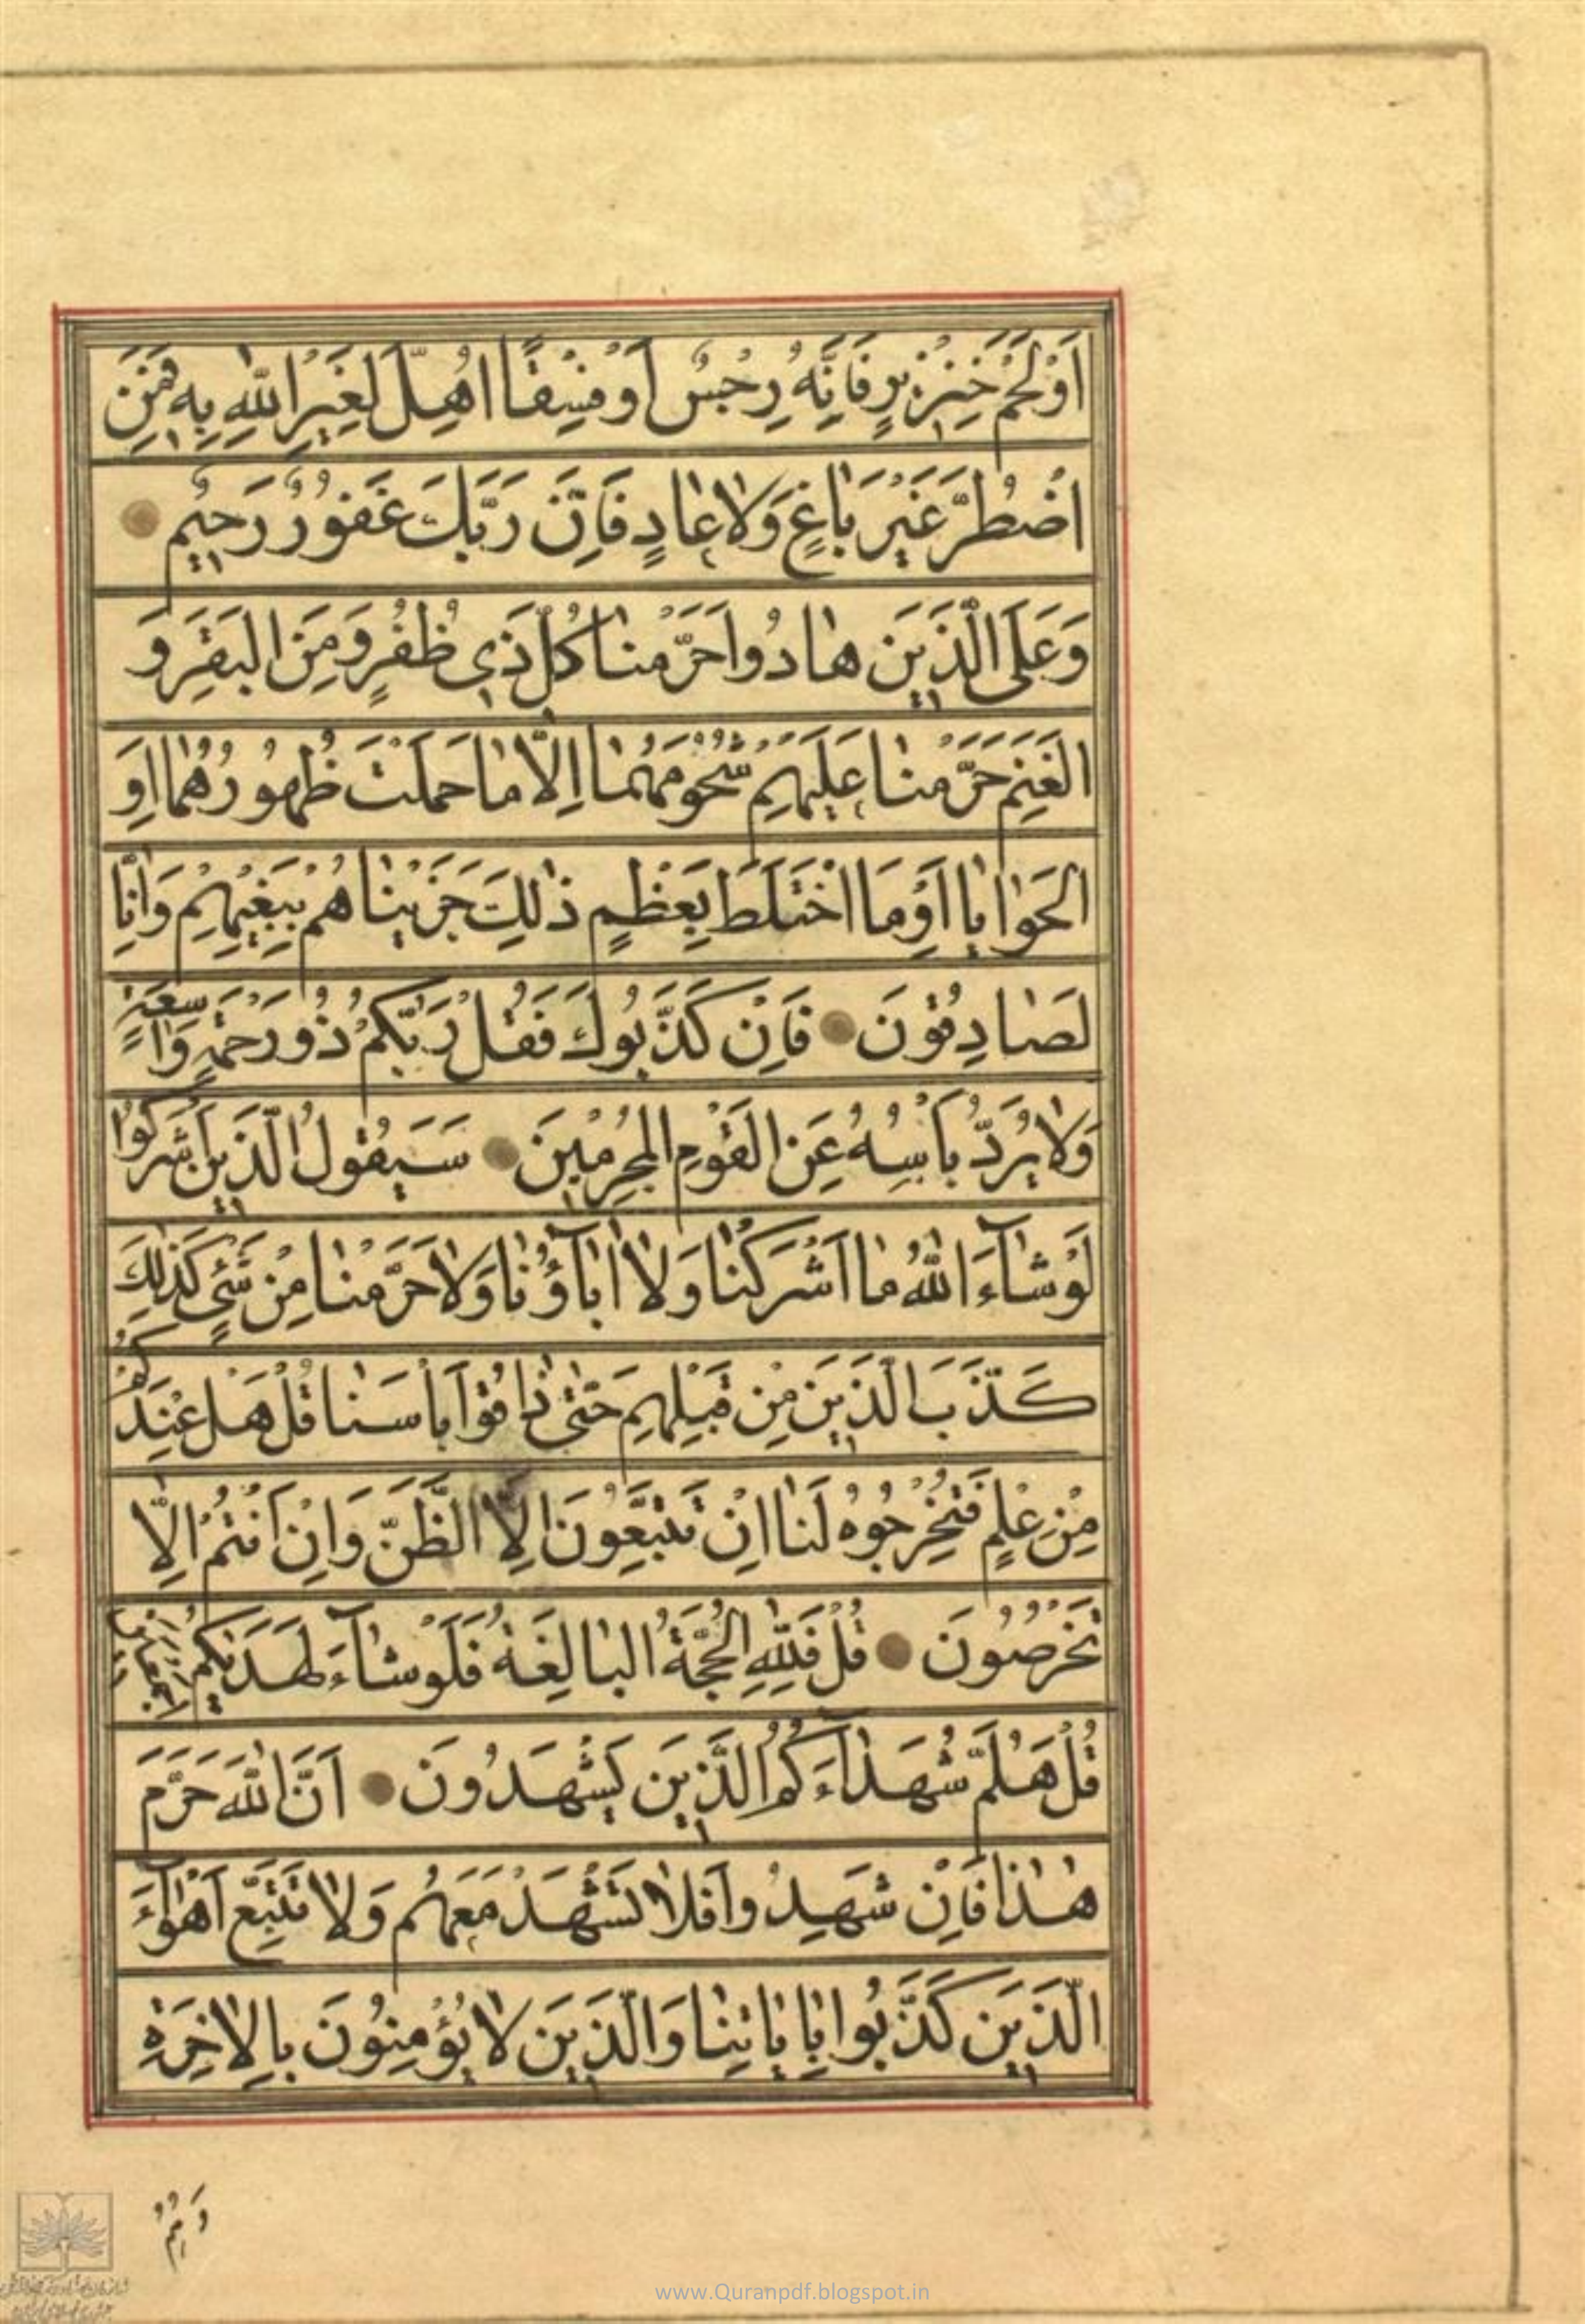 اَوْ لَحْمَ خِنْزِيرٍ فَاِنَّهُ رِجْسٌ اَوْ فِسْقًا اُهِلَّ لِغَيْرِ اللّٰهِ بِهٖ فَمَنِ
اضْطُرَّ غَيْرَ بَاغٍ وَلَا عَادٍ فَاِنَّ رَبَّكَ غَفُورٌ رَحِيمٌ
وَعَلَى الَّذِينَ هَادُوا حَرَّمْنَا كُلَّ ذِي ظُفُرٍ وَمِنَ الْبَقَرِ وَ
الْغَنَمِ حَرَّمْنَا عَلَيْهِمْ شُحُومَهُمَا اِلَّا مَا حَمَلَتْ ظُهُورُهُمَا اَوِ
الْحَوَايَا اَوْ مَا اخْتَلَطَ بِعَظْمٍ ذٰلِكَ جَزَيْنَاهُمْ بِبَغْيِهِمْ وَاِنَّا
لَصَادِقُونَ فَاِنْ كَذَّبُوكَ فَقُلْ رَبُّكُمْ ذُو رَحْمَةٍ وَاسِعَةٍ
وَلَا يُرَدُّ بَأْسُهُ عَنِ الْقَوْمِ الْمُجْرِمِينَ سَيَقُولُ الَّذِينَ اَشْرَكُوا
لَوْ شَآءَ اللّٰهُ مَا اَشْرَكْنَا وَلَا اٰبَآؤُنَا وَلَا حَرَّمْنَا مِنْ شَيْءٍ كَذٰلِكَ
كَذَّبَ الَّذِينَ مِنْ قَبْلِهِمْ حَتّٰى ذَاقُوا بَأْسَنَا قُلْ هَلْ عِنْدَكُمْ
مِنْ عِلْمٍ فَتُخْرِجُوهُ لَنَا اِنْ تَتَّبِعُونَ اِلَّا الظَّنَّ وَاِنْ اَنْتُمْ اِلَّا
تَخْرُصُونَ قُلْ فَلِلّٰهِ الْحُجَّةُ الْبَالِغَةُ فَلَوْ شَآءَ لَهَدٰيكُمْ اَجْمَعِينَ
قُلْ هَلُمَّ شُهَدَآءَكُمُ الَّذِينَ يَشْهَدُونَ اَنَّ اللّٰهَ حَرَّمَ
هٰذَا فَاِنْ شَهِدُوا فَلَا تَشْهَدْ مَعَهُمْ وَلَا تَتَّبِعْ اَهْوَآءَ
الَّذِينَ كَذَّبُوا بِاٰيَاتِنَا وَالَّذِينَ لَا يُؤْمِنُونَ بِالْاٰخِرَةِ
وَهُمْ
www.Quranpdf.blogspot.in